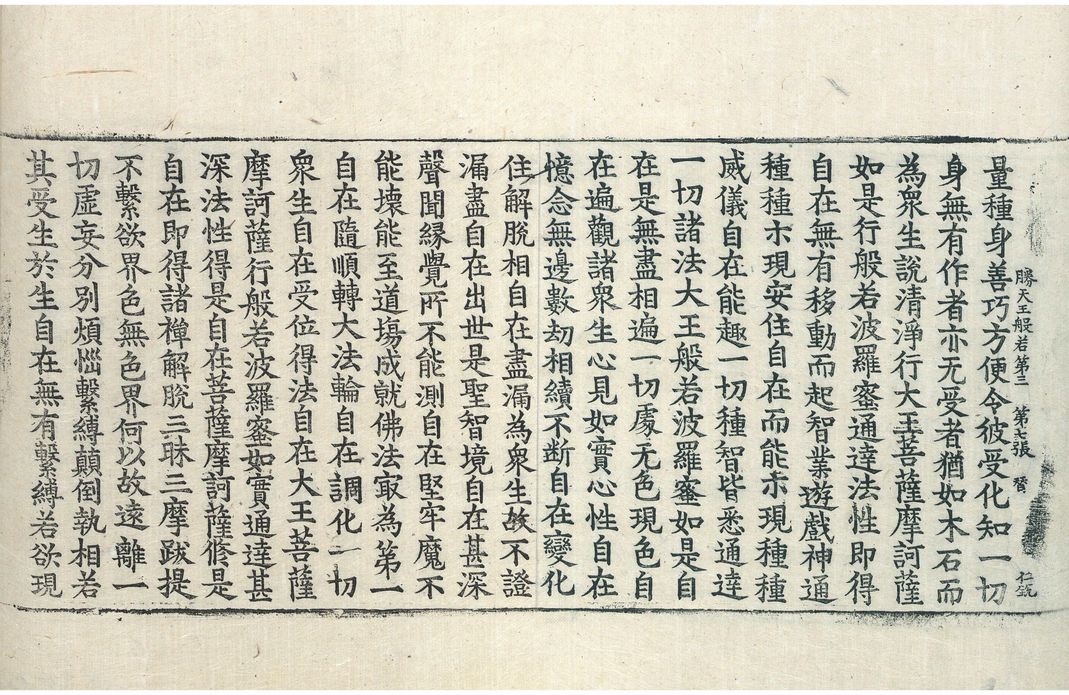 勝天王般若第三　第七張　賢　仁鈗
量種身善巧方便令彼受化知一切
身無有作者亦无受者猶如木石而
為衆生說清淨行大王菩薩摩訶薩
如是行般若波羅蜜通達法性即得
自在無有移動而起智業遊戲神通
種種示現安住自在而能示現種種
威儀自在能趣一切種智皆悉通達
一切諸法大王般若波羅蜜如是自
在是無盡相遍一切處无色現色自
在遍觀諸衆生心見如實心性自在
憶念無邊數劫相續不断自在變化
住解脫相自在盡漏為衆生故不證
漏盡自在出世是聖智境自在甚深
聲聞緣覺所不能測自在堅牢魔不
能壞能至道場成就佛法㝡為第一
自在隨順轉大法輪自在調化一切
衆生自在受位得法自在大王菩薩
摩訶薩行般若波羅蜜如實通達甚
深法性得是自在菩薩摩訶薩修是
自在即得諸禪解脫三昧三摩跋提
不繫欲界色無色界何以故遠離一
切虛妄分別煩惱繫縛顛倒執相若
其受生於生自在無有繫縛若欲現